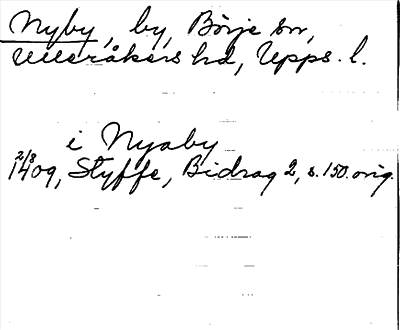 Nyby, by, Börje sn,
Ulleråkers hd, Upps. l.
i Nyaby
2/8
1409, Styffe, Bidrag 2, s. 150. orig.